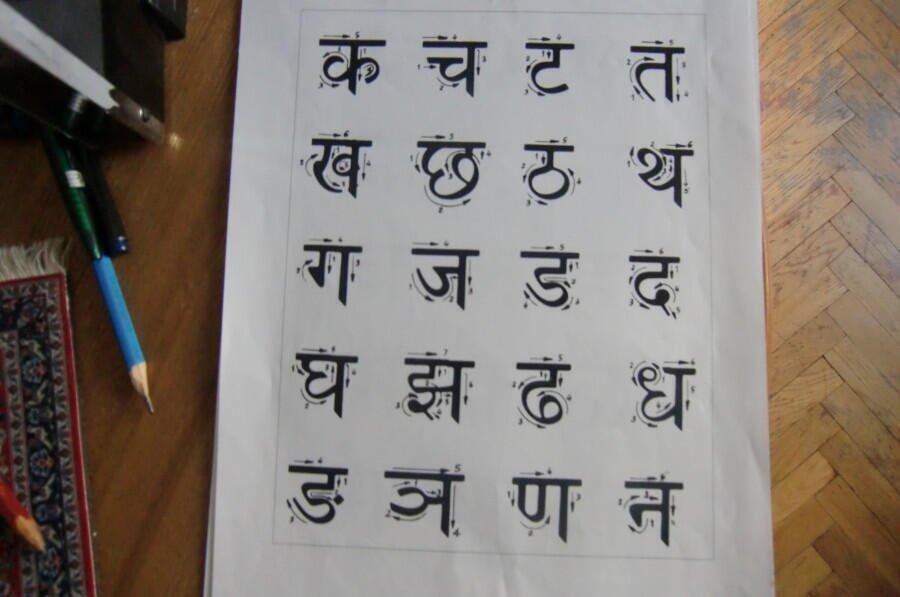 क च ट त
ख छ ठ थ
ग ज ड द
घ झ ढ ध
ङ ञ ण न